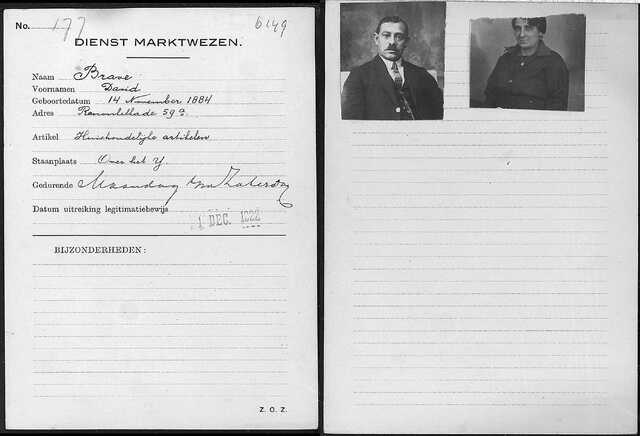 No. 177 6149
DIENST MARKTWEZEN.
Naam Brave
Voornamen David
Geboortedatum 14 November 1884
Adres 59a
Artikel Huishoudelijke artikelen
Staanplaats Over het Y.
Gedurende Maandag t/m Zaterdag
Datum uitreiking legitimatiebewijs 1 DEC. 1922
BIJZONDERHEDEN:
Z. O. Z.